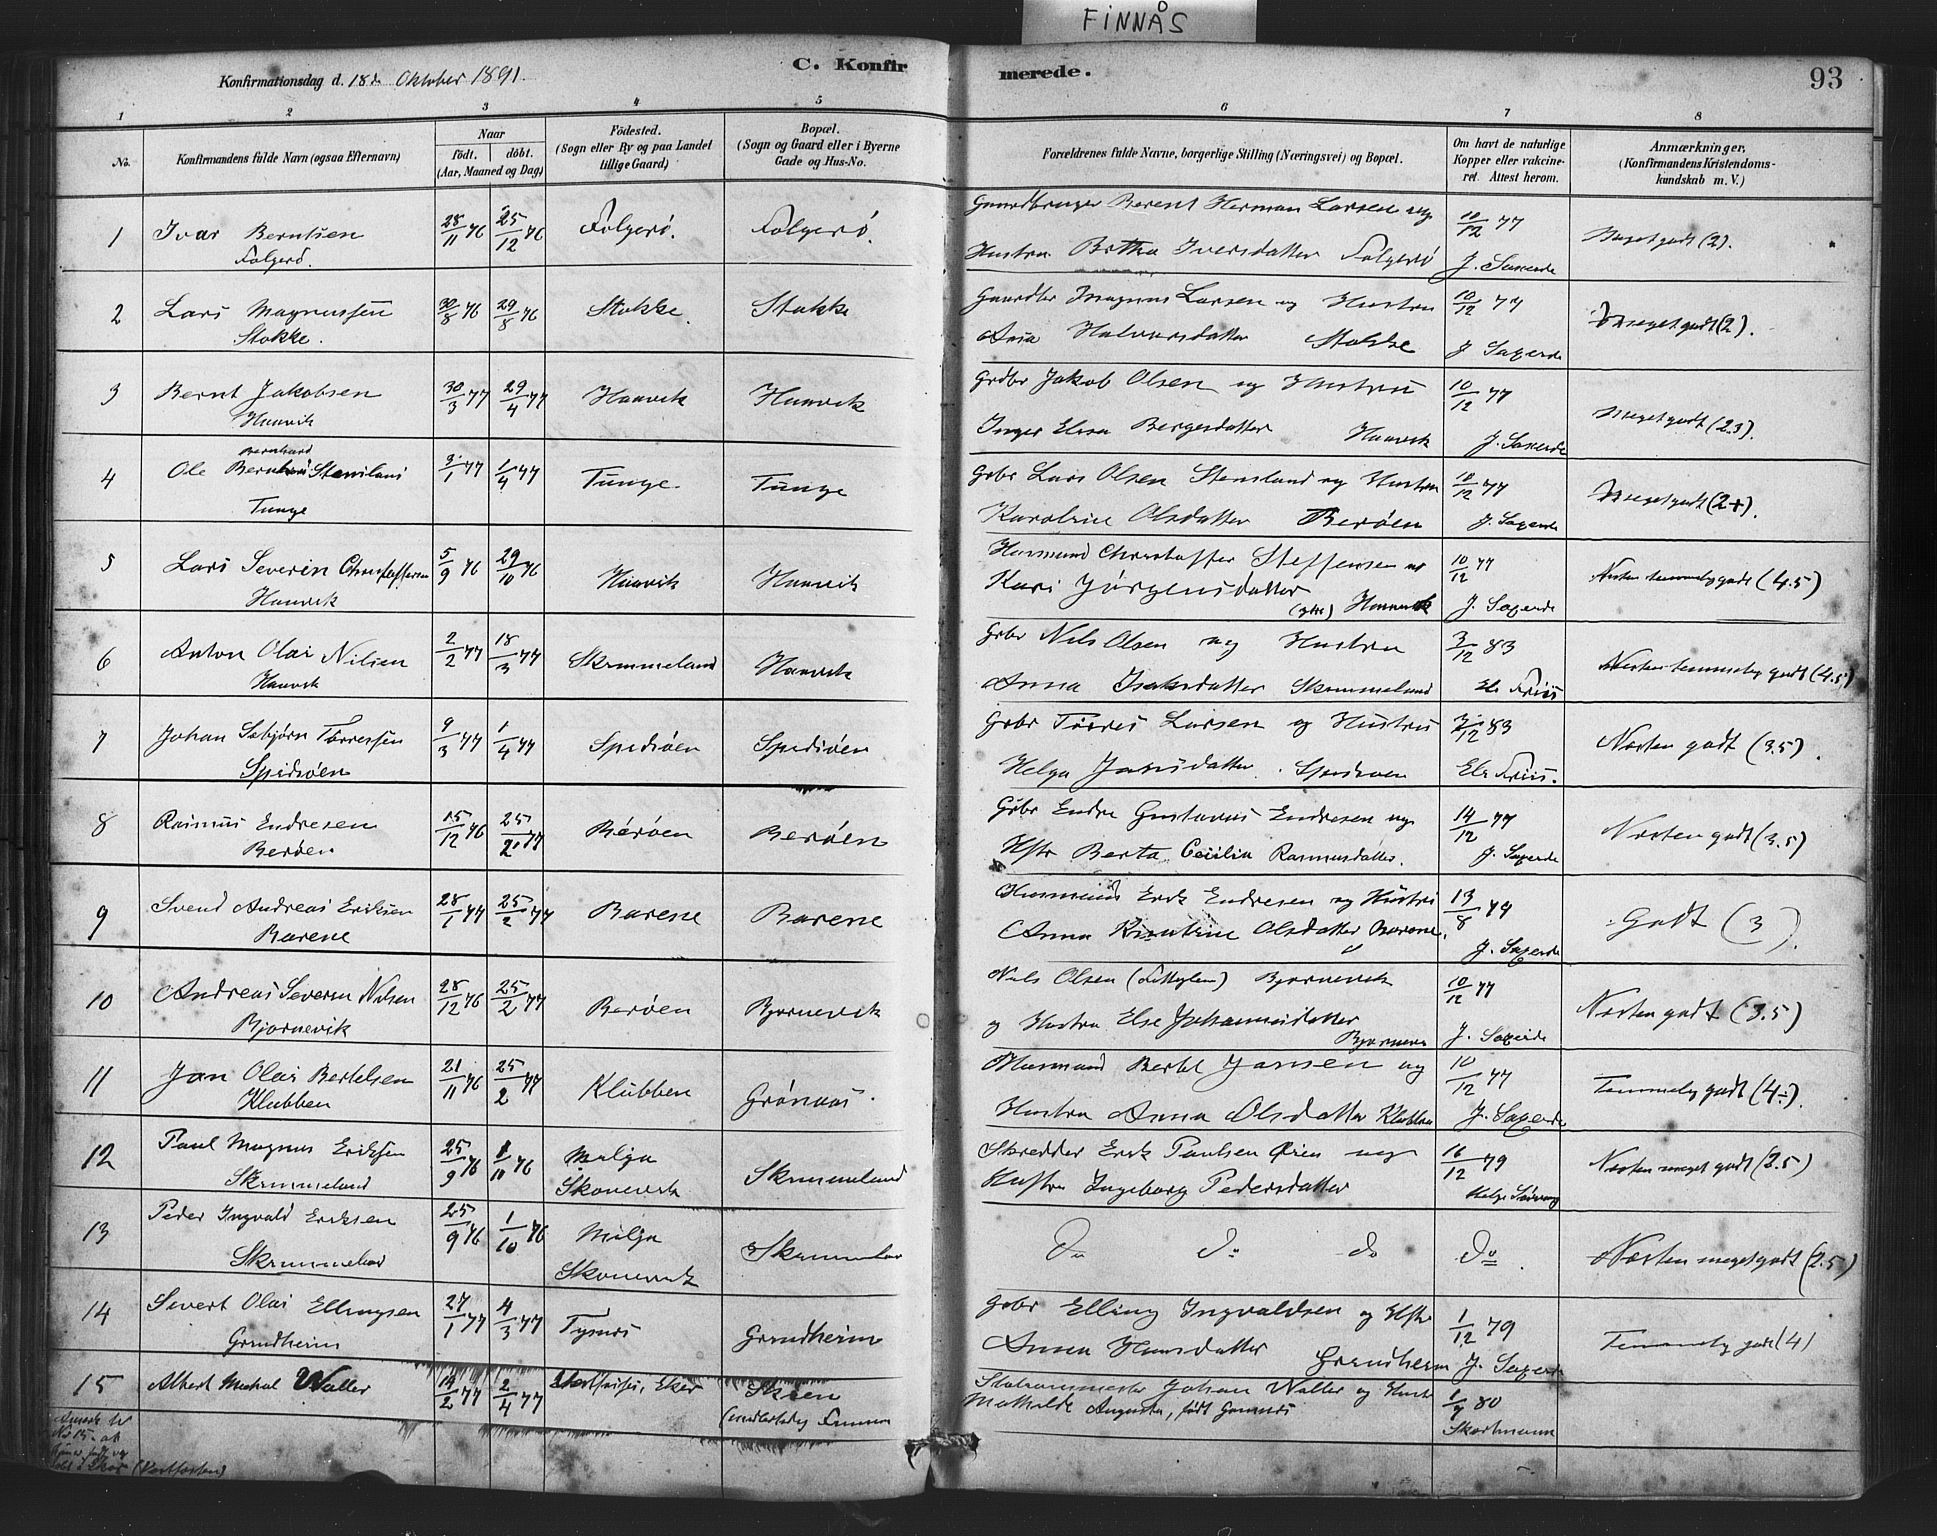 FINNÅS
Konfirmationsdag d. 18de Oktober 1891.
C. Konfirmerede.
93
1 2 3 4 5 6 7 8
No.
Konfirmandens fulde Navn (ogsaa Efternavn)
Naar
födt. döbt.
(Aar, Maaned og Dag)
Födested.
(Sogn eller By og paa Landet
tillige Gaard)
Bopæl.
(Sogn og Gaard eller i Byerne
Gade og Hus-No.
Forældrenes fulde Navne, borgerlige Stilling (Næringsvei) og Bopæl.
Om havt de naturlige
Kopper eller vakcine-
ret. Attest herom.
Anmærkninger.
(Konfirmandens Kristendoms-
kundskab m. V.)
1 Ivar Berntsen 28/11 76 25/12 76 Folgerö. Folgerö. Gaardbruger Berent Herman Larsen og 10/12 77 Meget godt (2).
Folgerö. Hustru Britha Iversdatter Folgerö J. Saxeide
2 Lars Magnussen 30/8 76 29/8 76 Stokke. Stokke Gaardbr Magnus Larsen og Hustru 10/12 77 Meget godt (2).
Stokke. Anna Halvorsdatter Stokke J. Saxeide
3 Bernt Jakobsen 30/3 77 29/4 77 Haavik Haavik Grdbr Jakob Olsen og Hustru 10/12 77 Meget godt (2.3).
Haavik Inger Elisa Bergesdatter Haavik J. Saxeide
Bernhard
4 Ole Stensland /1 77 1/4 77 Tunge. Tunge Grbr Lars Olsen Stensland og Hustru 10/12 77 Meget godt (2+).
Tunge Karoline Olsdatter Beröen J. Saxeide
5 Lars Severin Christoffersen 5/9 76 29/10 76 Haavik Haavik Husmand Christoffer Steffensen og 10/12 77 Næsten temmelig godt (4.5)
Haavik Kari Jörgensdatter Haavik J. Saxeide
6 Anton Olai Nilsen 2/2 77 18/3 77 Skimmeland Haavik Grbr Nils Olsen og Hustru 3/12 83 Næsten temmelig godt (4.5)
Haavik Anna Isaksdatter Skimmeland Friis
7 Johan Sebjørn Tørressen 9/3 77 1/4 77 Spidsöen Spidsöen Grbr Törres Larsen og Hustru 3/12 83 Næsten godt (3.5).
Spidsöen Helga Jansdatter. Spidsöen Friis.
8 Rasmus Endresen 15/12 76 25/2 77 Beröen Beröen Grbr Endre Gustavus Endresen og 14/12 77 Næsten godt (3.5)
Beröen Hstr Berta Cecilia Rasmusdatter. J. Saxeide
9 Svend Andreas Eriksen 28/1 77 25/2 77 Barene Barene Husmand Erik Endresen og Hustru 13/8 79 Godt (3).
Barene Anna Olsdatter Barene. J. Saxeide
10 Andreas Severin Nilsen 28/12 76 25/2 77 Beröen Bjørnevik Nils Olsen Bjørnevik 10/12 77 Næsten godt (3.5)
Bjørnevik og Hustru Else Johannesdatter J. Saxeide
11 Jan Olai Bertelsen 21/11 76 25/2 77 Klubben Grönaas. Husmand Bertel Jansen og 10/12 77 Temmelig godt (4÷).
Klubben Hustru Anna Olsdatter Klubben J. Saxeide
12 Paul Magnus Eriksen 25/9 76 1/10 76 Milja Skimmeland Skredder Erik Paulsen og 16/12 79 Næsten meget godt (2.5)
Skimmeland Skonevik Hustru Ingeborg Pedersdatter Helge
13 Peder Ingvald Eriksen 25/9 76 1/10 76 Milja Skimmeland Do Do do Do. Næsten meget godt (2.5)
Skimmeland Skonevik
14 Sivert Olai Ellingsen 27/1 77 4/3 77 Tysnes Grindheim Grbr Elling Ingvaldsen og Hstr 1/12 79 Temmelig godt (4)
Grindheim Anna Hansdatter Grindheim J. Saxeide
15 Albert Michal Waller 14/2 77 2/4 77 Eker Skien Johan Waller og Hustr 1/9 80
(midlertidig Mathilde Augusta, født
No 15. at